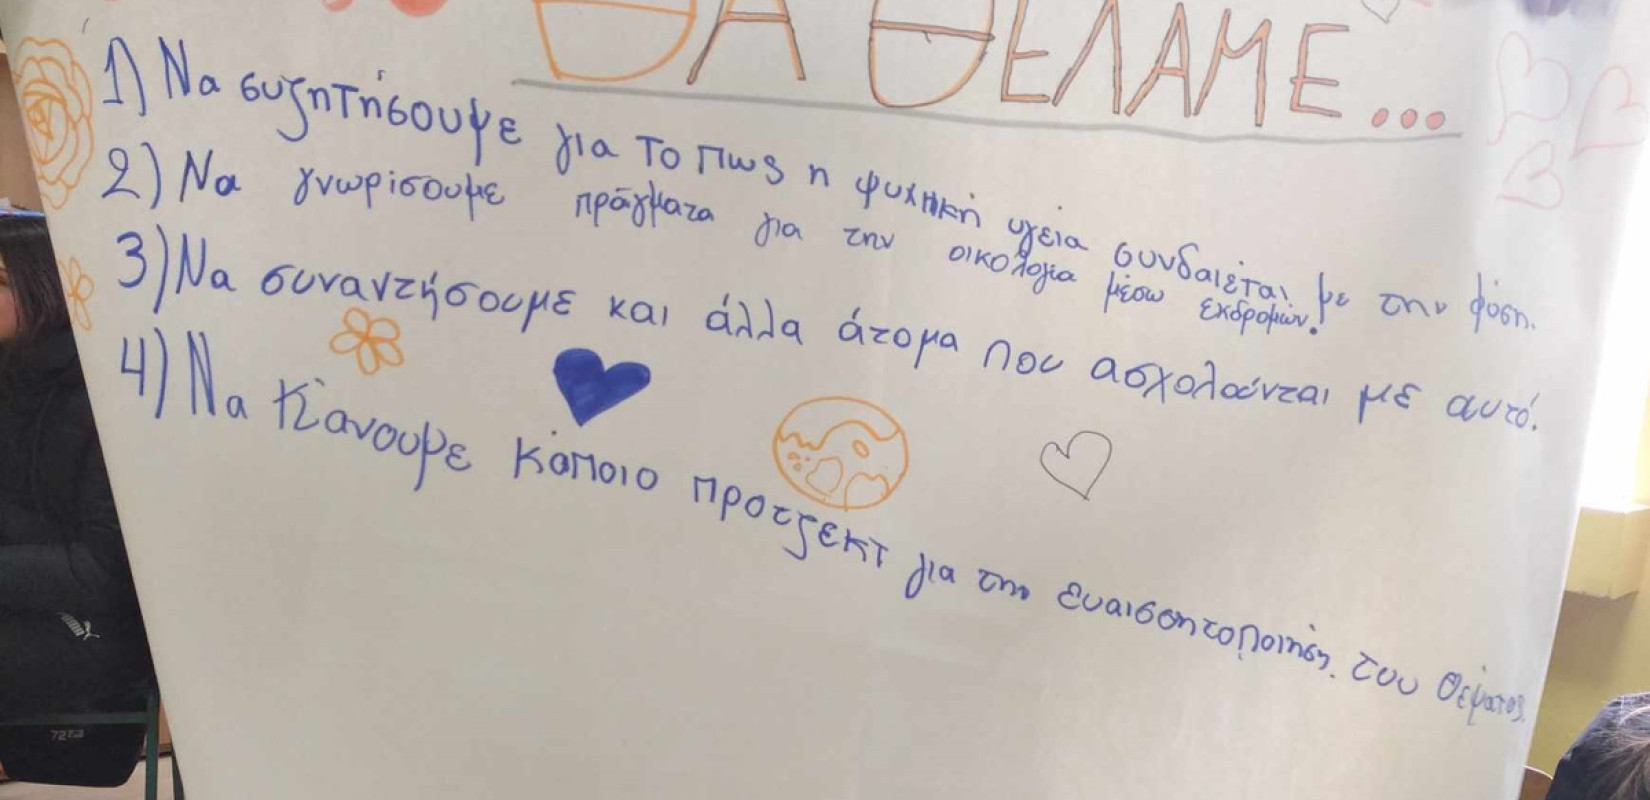 ΘΑ ΘΕΛΑΜΕ...
1) Να συζητήσουμε για το πως η ψυχηκή υγεία συνδαιέται με την φύση.
2) Να γνωρίσουμε πράγματα για την οικολογία μέσω εκδρομών.
3) Να συναντήσουμε και άλλα άτομα που ασχολούνται με αυτό.
4) Να κάνουμε κάποιο προτζεκτ για την ευαισθητοποιήση του θέματος.